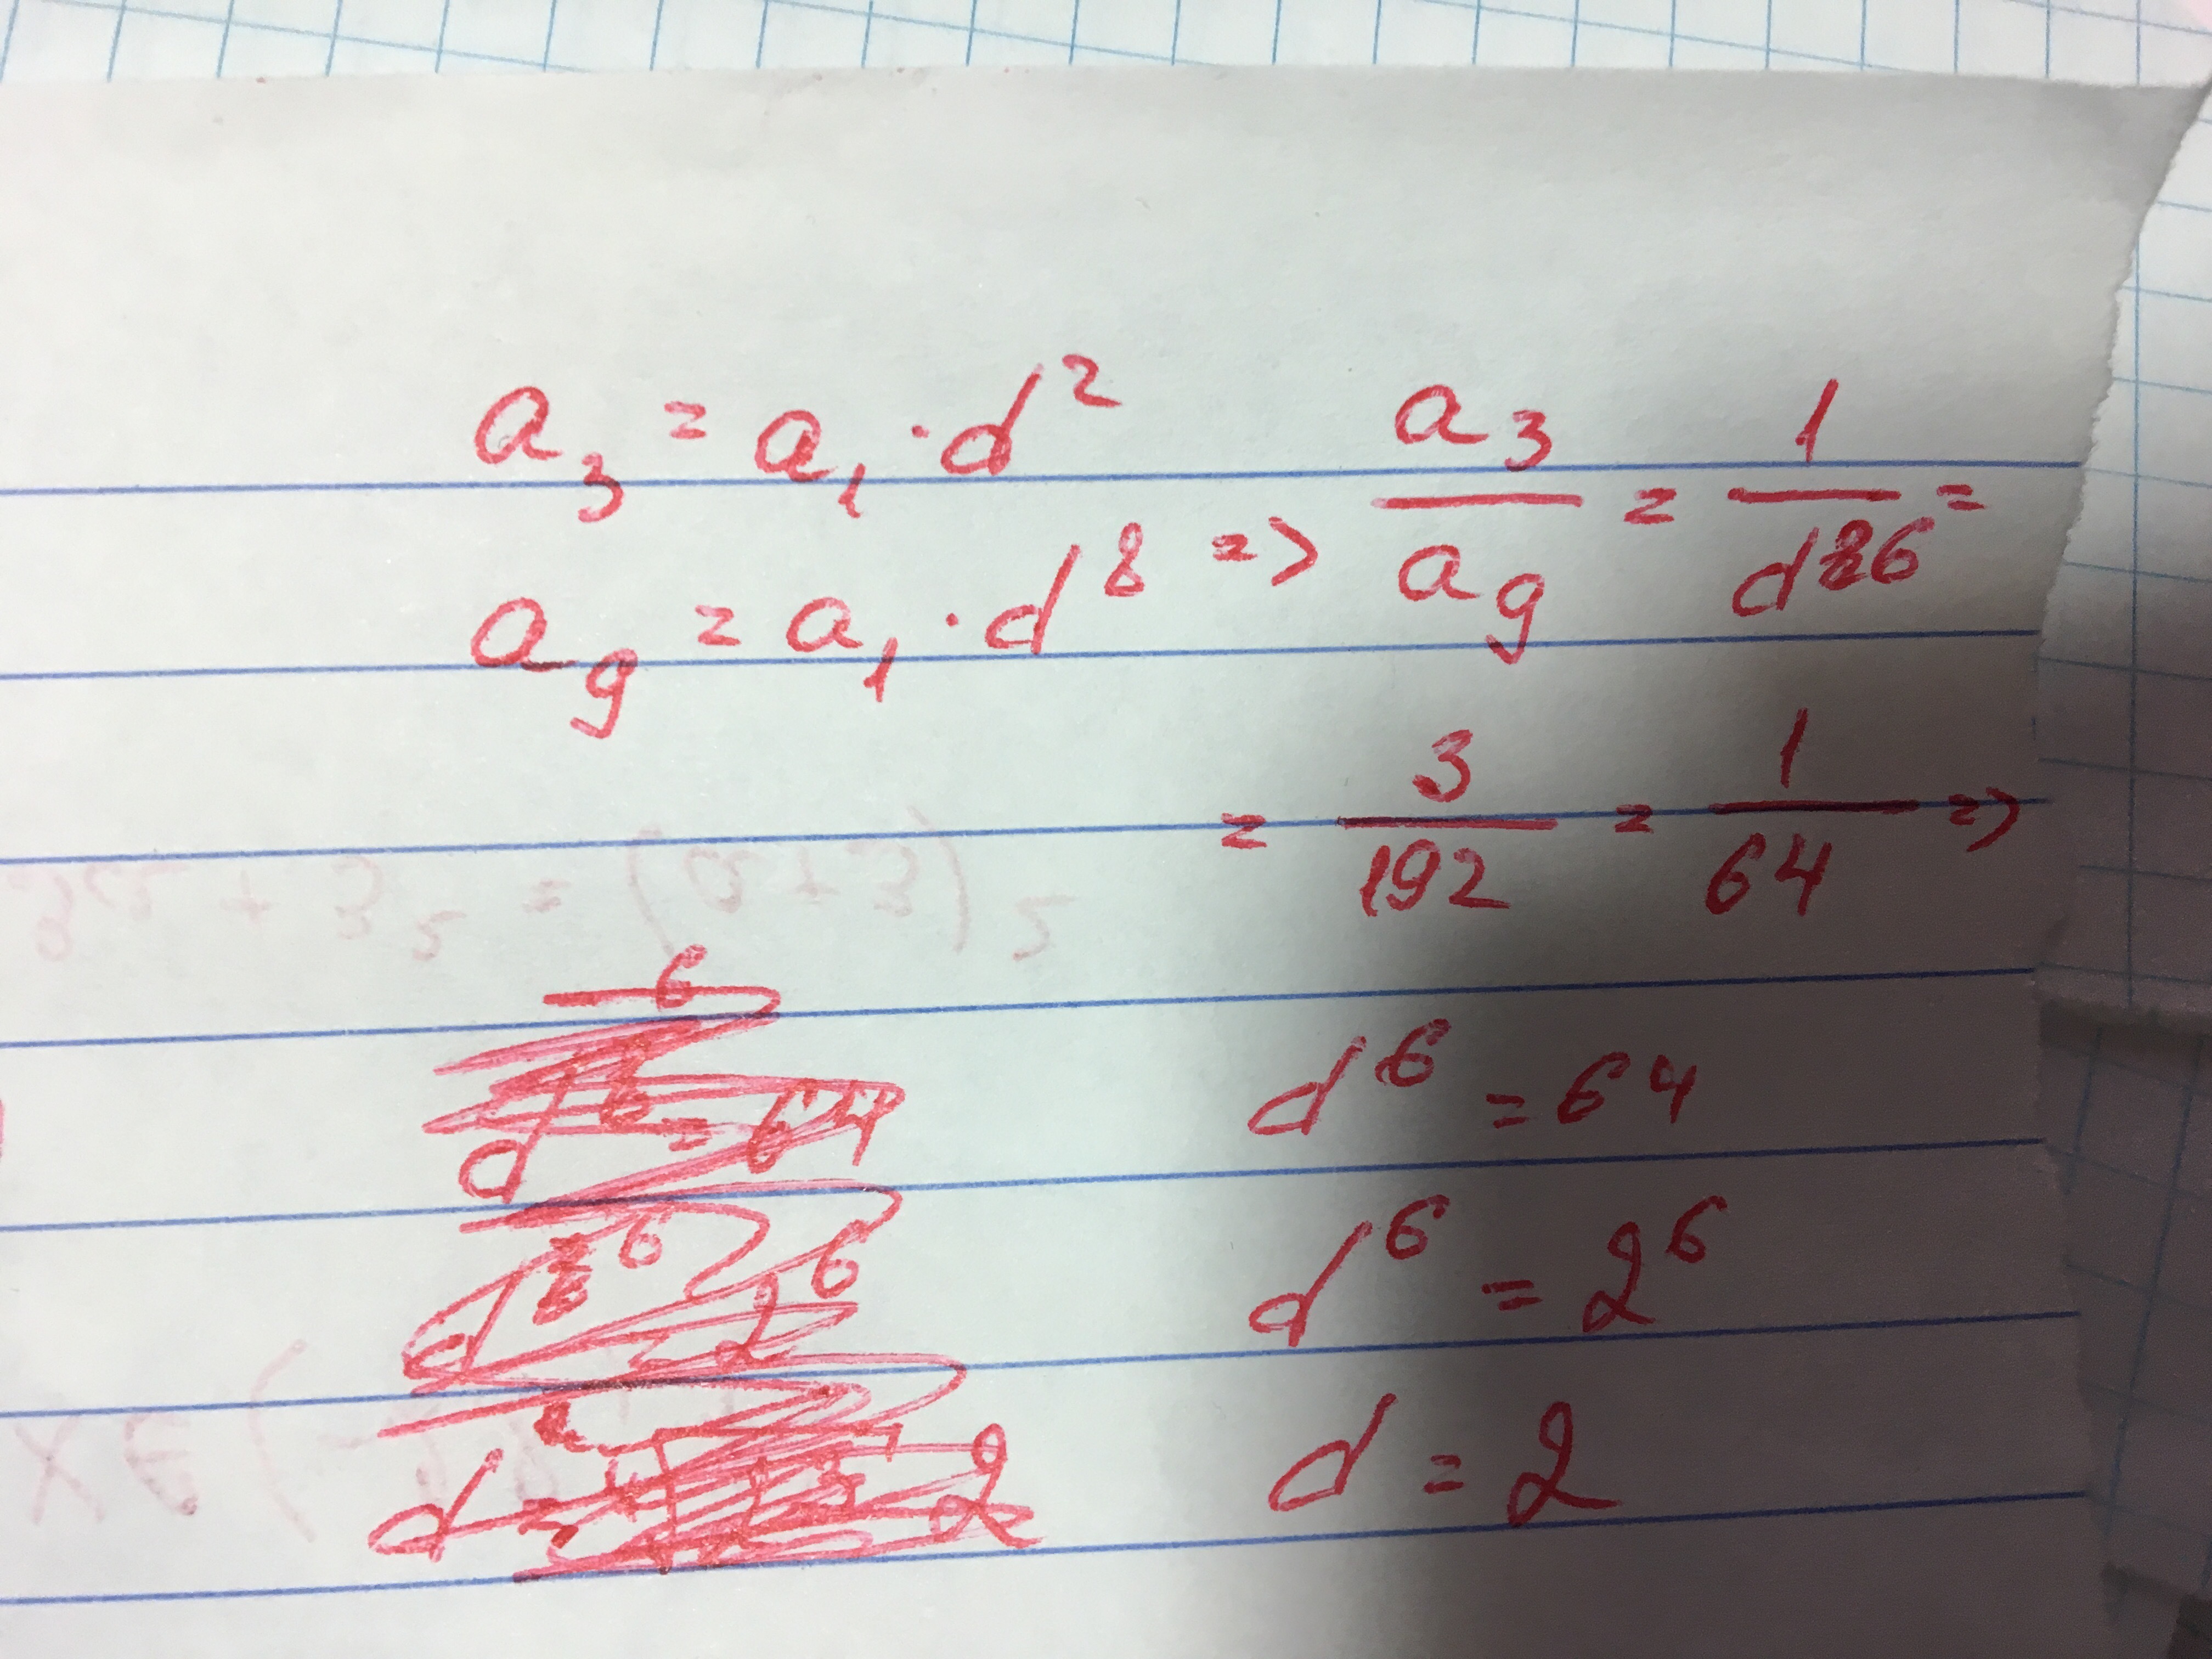 a₃ = a₁ · d²
a₉ = a₁ · d⁸ => a₃/a₉ = 1/d⁶ =
= 3/192 = 1/64 =>
d⁶ = 64
d⁶ = 2⁶
d = 2